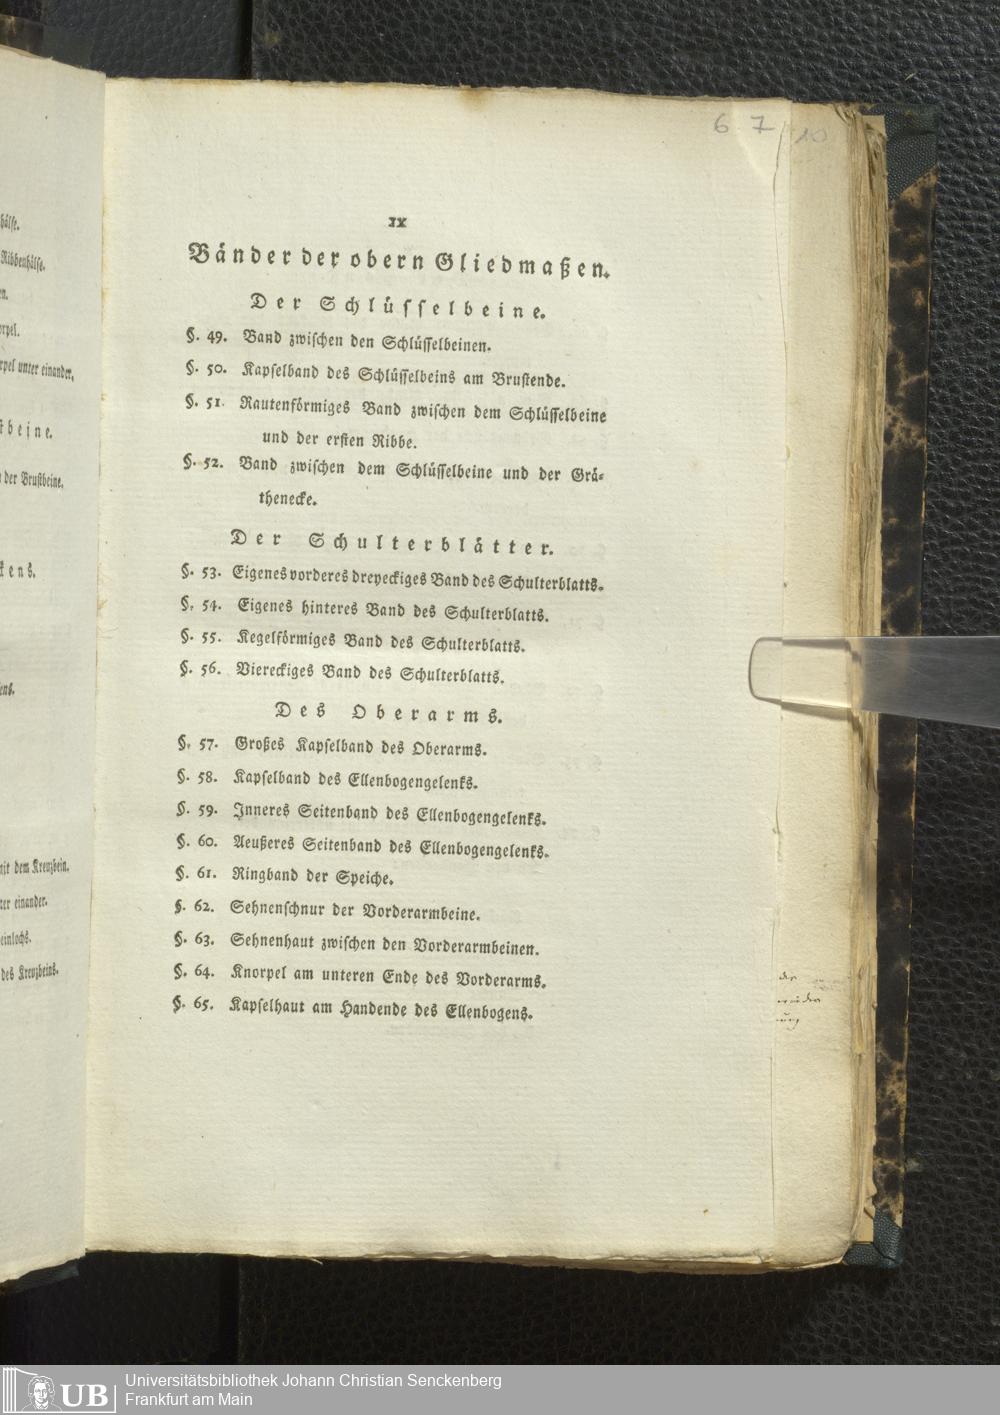 hälse.
Ribbenhälse.
en.
orpel.
rpel unter einander.
tbeine.
der Brustbeine.
kens.
ens.
mit dem Kreuzbein.
ter einander.
einlochs.
des Kreuzbeins.
6 7 10
IX
Bänder der obern Gliedmaßen.
Der Schlüsselbeine.
§. 49. Band zwischen den Schlüsselbeinen.
§. 50. Kapselband des Schlüsselbeins am Brustende.
§. 51. Rautenförmiges Band zwischen dem Schlüsselbeine
und der ersten Ribbe.
§. 52. Band zwischen dem Schlüsselbeine und der Grä-
thenecke.
Der Schulterblätter.
§. 53. Eigenes vorderes dreyeckiges Band des Schulterblatts.
§. 54. Eigenes hinteres Band des Schulterblatts.
§. 55. Kegelförmiges Band des Schulterblatts.
§. 56. Viereckiges Band des Schulterblatts.
Des Oberarms.
§. 57. Großes Kapselband des Oberarms.
§. 58. Kapselband des Ellenbogengelenks.
§. 59. Inneres Seitenband des Ellenbogengelenks.
§. 60. Aeußeres Seitenband des Ellenbogengelenks.
§. 61. Ringband der Speiche.
§. 62. Sehnenschnur der Vorderarmbeine.
§. 63. Sehnenhaut zwischen den Vorderarmbeinen.
§. 64. Knorpel am unteren Ende des Vorderarms.
§. 65. Kapselhaut am Handende des Ellenbogens.
UB Universitätsbibliothek Johann Christian Senckenberg
Frankfurt am Main